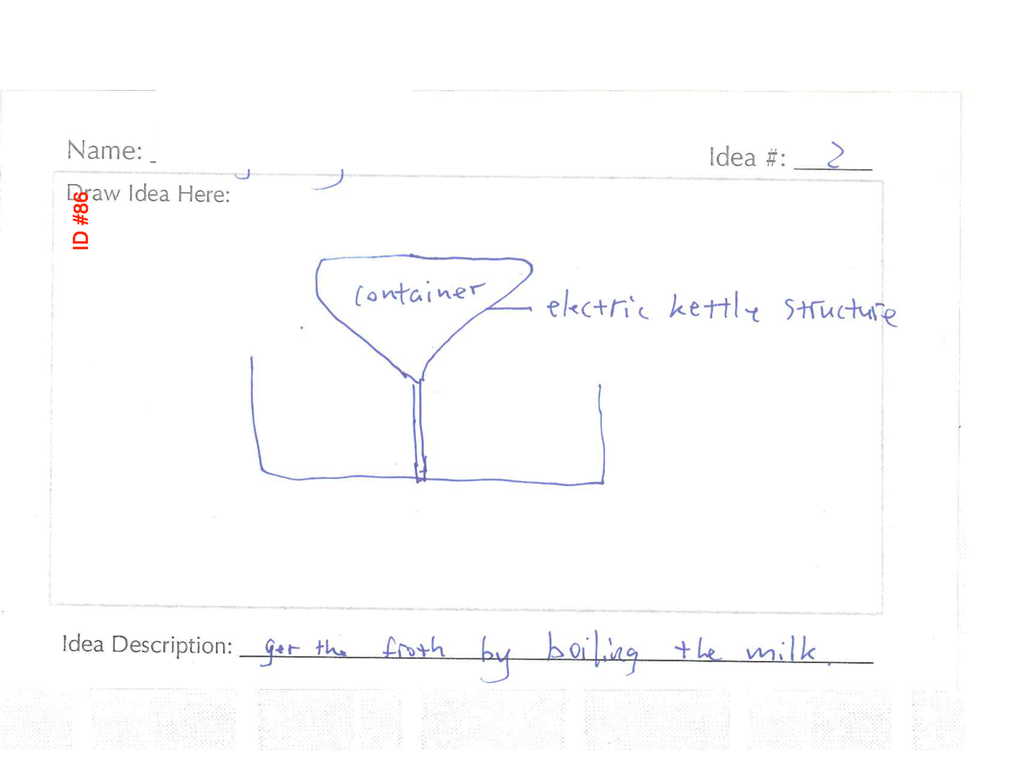 Name:
Idea #: 2
Draw Idea Here:
ID #86
container
electric kettle structure
Idea Description: get the froth by boiling the milk.